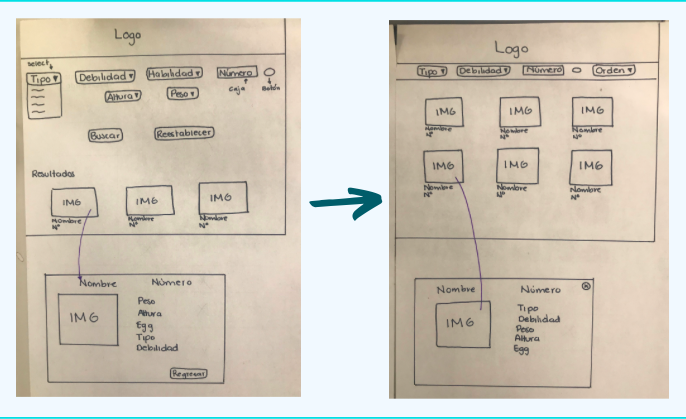 Logo
select
Tipo Debilidad Habilidad Número
Caja Botón
Altura Peso
Buscar Reestablecer
Resultados
IMG IMG IMG
Nombre Nombre Nombre
Nº Nº Nº
Nombre Número
IMG
Peso
Altura
Egg
Tipo
Debilidad
Regresar
Logo
Tipo Debilidad Número Orden
IMG IMG IMG
Nombre Nombre Nombre
Nº Nº Nº
IMG IMG IMG
Nombre Nombre Nombre
Nº Nº Nº
Nombre Número
IMG
Tipo
Debilidad
Peso
Altura
Egg